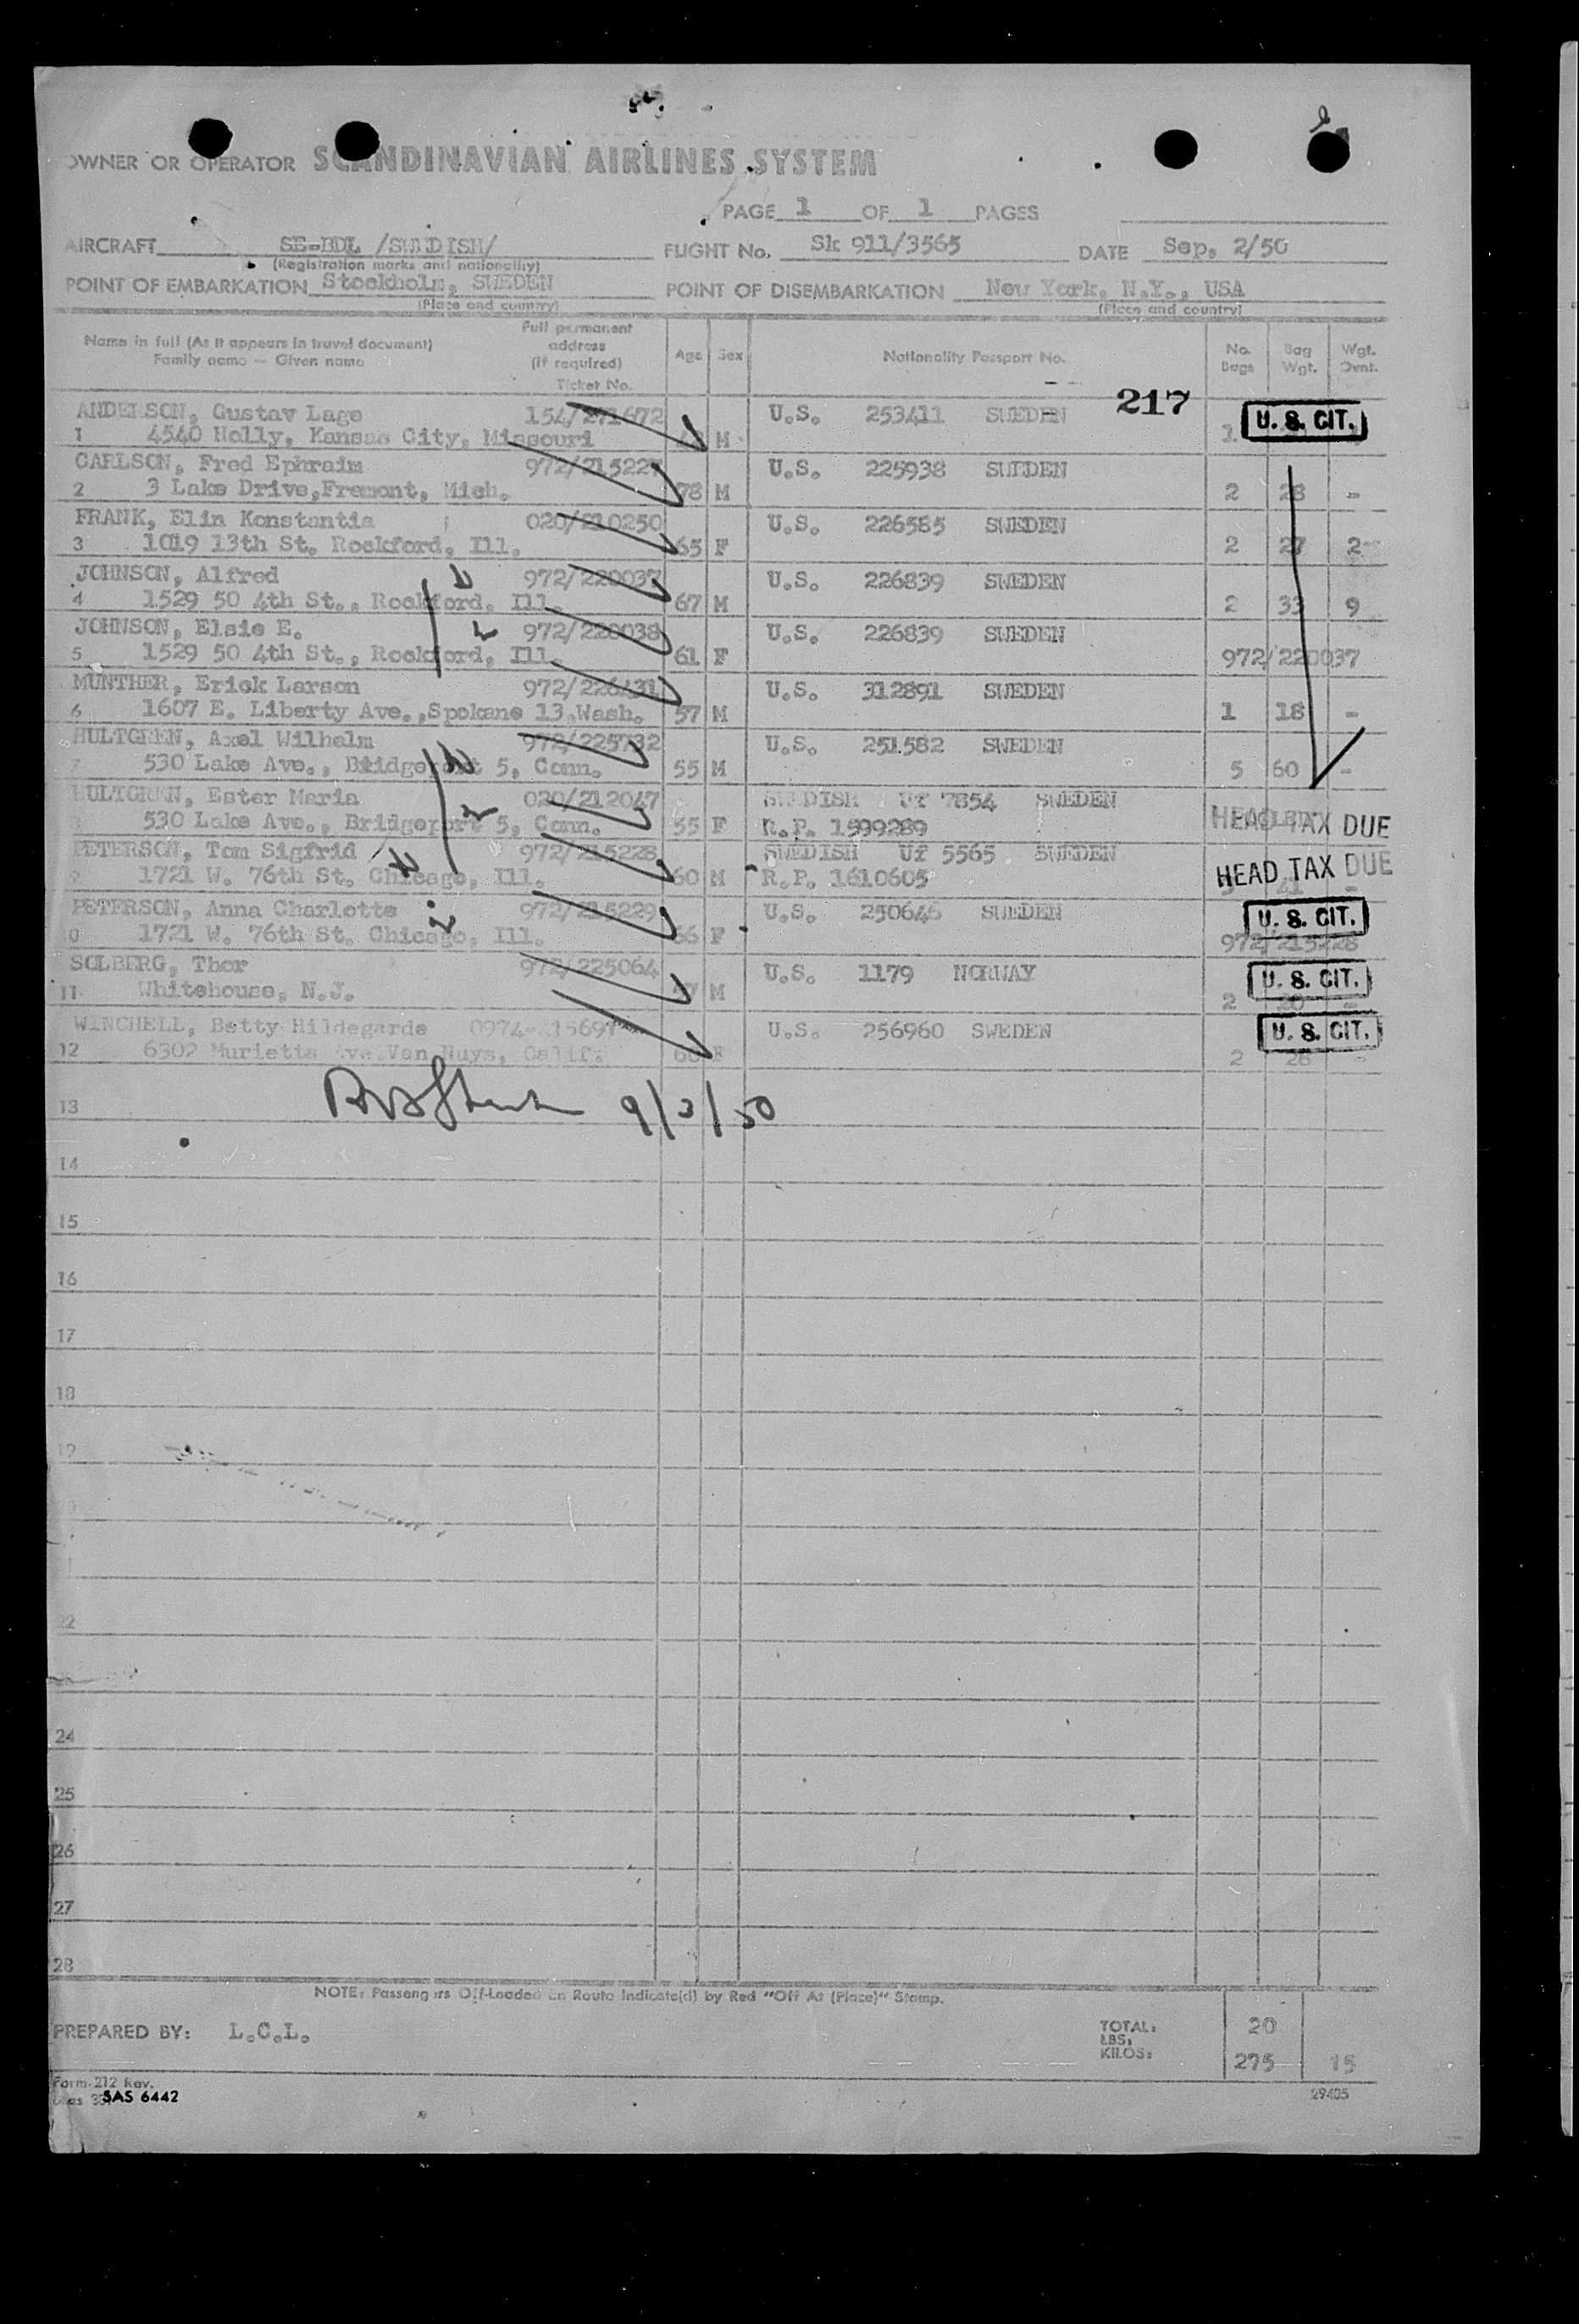 OWNER OR OPERATOR SCANDINAVIAN AIRLINES SYSTEM
PAGE 1 OF 1 PAGES
AIRCRAFT SE-BDL /SWEDISH/ FLIGHT No. Sk 911/3565 DATE Sep. 2/50
(Registration marks and nationality)
POINT OF EMBARKATION Stockholm, SWEDEN POINT OF DISEMBARKATION New York, N.Y., USA
(Place and country) (Place and country)
Name in full (As it appears in travel document) Family name — Given name Full permanent address (if required) Ticket No. Age Sex Nationality Passport No. No. Bags Bag Wgt. Wgt. Ovnt.
217
ANDERSON, Gustav Lage 154/271672 U.S. 253411 SWEDEN U. S. CIT.
1 4540 Holly, Kansas City, Missouri M
CARLSON, Fred Ephraim 972/215227 U.S. 225938 SWEDEN
2 3 Lake Drive, Fremont, Mich. 78 M 2 28 -
FRANK, Elin Konstantia 020/210250 U.S. 226585 SWEDEN
3 1019 13th St. Rockford, Ill. 65 F 2 27 2
JOHNSON, Alfred 972/220037 U.S. 226839 SWEDEN
4 1529 50 4th St., Rockford, Ill. 67 M 2 33 9
JOHNSON, Elsie E. 972/220038 U.S. 226839 SWEDEN
5 1529 50 4th St., Rockford, Ill. 61 F 972/220037
MUNTHER, Erick Larson 972/226431 U.S. 312891 SWEDEN
6 1607 E. Liberty Ave., Spokane 13, Wash. 57 M 1 18 -
HULTGREN, Axel Wilhelm 972/225732 U.S. 251582 SWEDEN
7 530 Lake Ave., Bridgeport 5, Conn. 55 M 5 60 -
HULTGREN, Ester Maria 020/212047 SWEDISH Uf 7854 SWEDEN
530 Lake Ave., Bridgeport 5, Conn. 55 F R.P. 1599289 HEAD TAX DUE
PETERSON, Tom Sigfrid 972/215228 SWEDISH Uf 5565 SWEDEN
1721 W. 76th St. Chicago, Ill. 60 M R.P. 1610605 HEAD TAX DUE
PETERSON, Anna Charlotte 972/215229 U.S. 250646 SWEDEN U. S. CIT.
1721 W. 76th St. Chicago, Ill. 66 F 972/215228
SOLBERG, Thor 972/225064 U.S. 1179 NORWAY U. S. CIT.
11 Whitehouse, N.J. M 2
WINCHELL, Betty Hildegarde U.S. 256960 SWEDEN U. S. CIT.
12 6302 Murietta Ave. Van Nuys, Calif. F 2 26 -
13 9/2/50
14
15
16
17
18
19
22
24
25
26
27
28
NOTE: Passengers Off-Loaded En Route Indicate(d) by Red "Off At (Place)" Stamp.
PREPARED BY: L.C.L. TOTAL: 20
LBS.
KILOS: 275 15
Form-212 Rev.
SAS 6442 29405